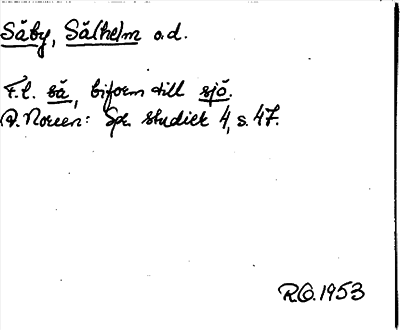 Såby, Sålhelm o.d.
F.l. så, biform till sjö.
A. Noreen: Spr. studier 4, s. 47.
R.O. 1953